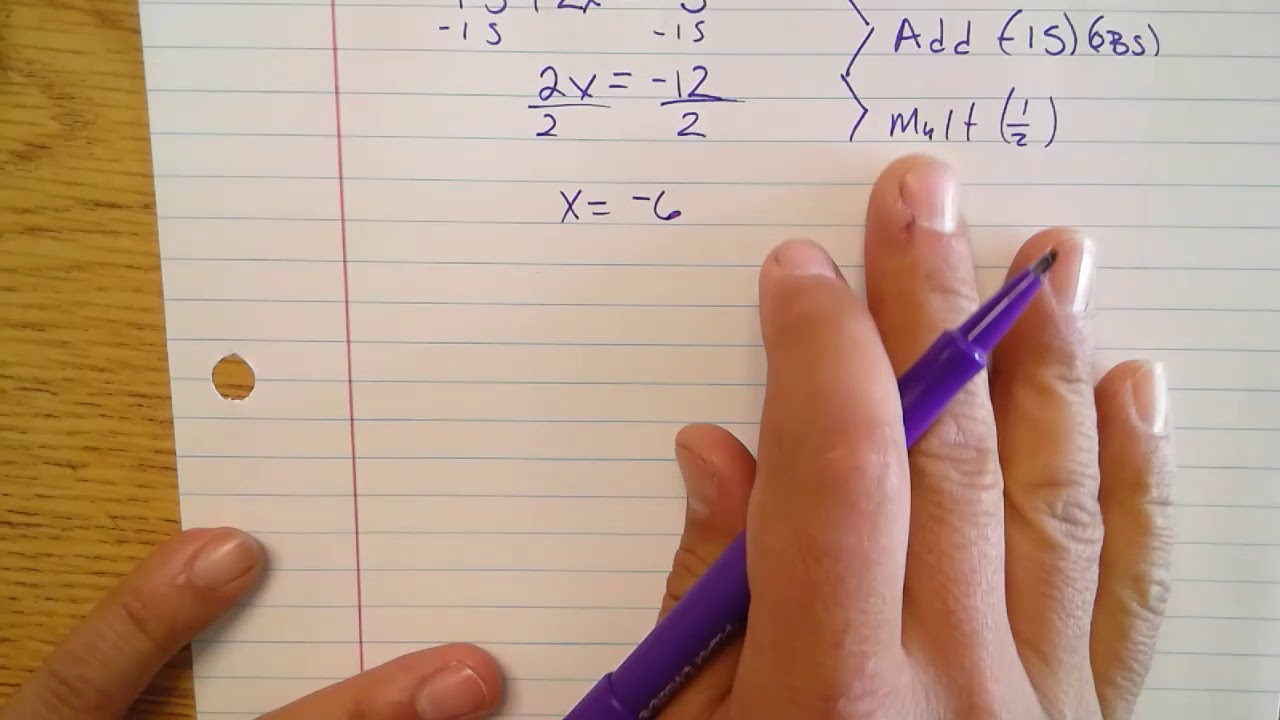 -15 -15 Add (-15)(OBS)
2x = -12
2 2 Mult (1/2)
x = -6